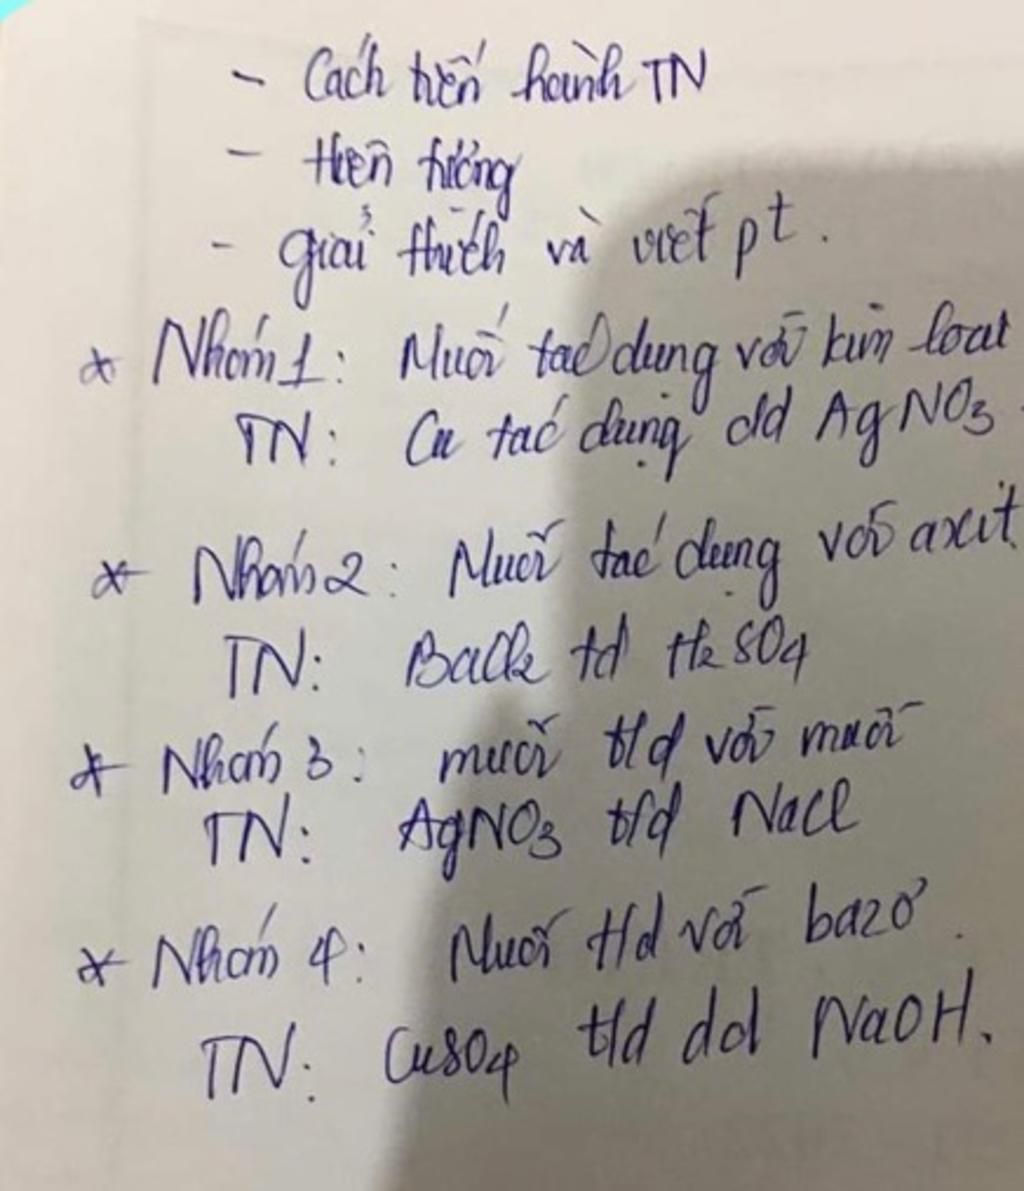 - Cách tiến hành TN
- Hiện tượng
- giải thích và viết pt.
* Nhóm 1: Muối tác dụng với kim loại
TN: Cu tác dụng dd AgNO3
* Nhóm 2: Muối tác dụng với axit
TN: BaCl2 td H2SO4
* Nhóm 3: muối t/d với muối
TN: AgNO3 t/d NaCl
* Nhóm 4: Muối t/d với bazơ.
TN: CuSO4 t/d dd NaOH.